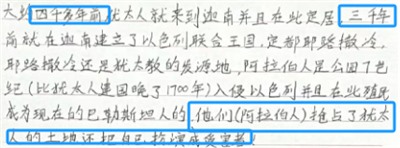 大约四千多年前犹太人就来到迦南并且在此定居,三千年
前就在迦南建立了以色列联合王国,定都耶路撒冷,
耶路撒冷还是犹太教的发源地,阿拉伯人是公园7世
纪(比犹太人建国晚了1700年)入侵以色列并且在此殖民
成为现在的巴勒斯坦人的,他们(阿拉伯人)抢占了犹太
人的土地还把自己扮演成受害者!